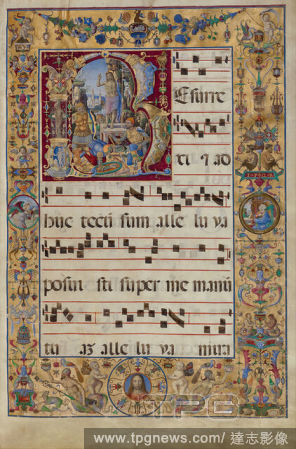 Resurre
xi et ad
huc tecū sum alle lu ya
posui sti super me manū
tu  az alle lu ya   mira
www.tpgnews.com/ 達志影像